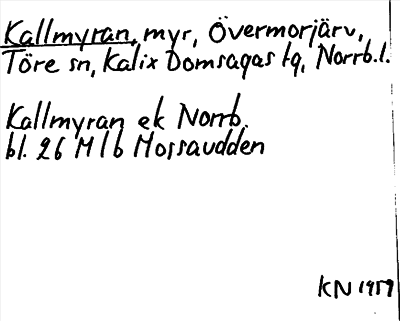 Kallmyran, myr, Övermorjärv,
Töre sn, Kalix Domsagas tg, Norrb.l.
Kallmyran ek Norrb.
bl. 26 M1b Mossaudden
KN 1959